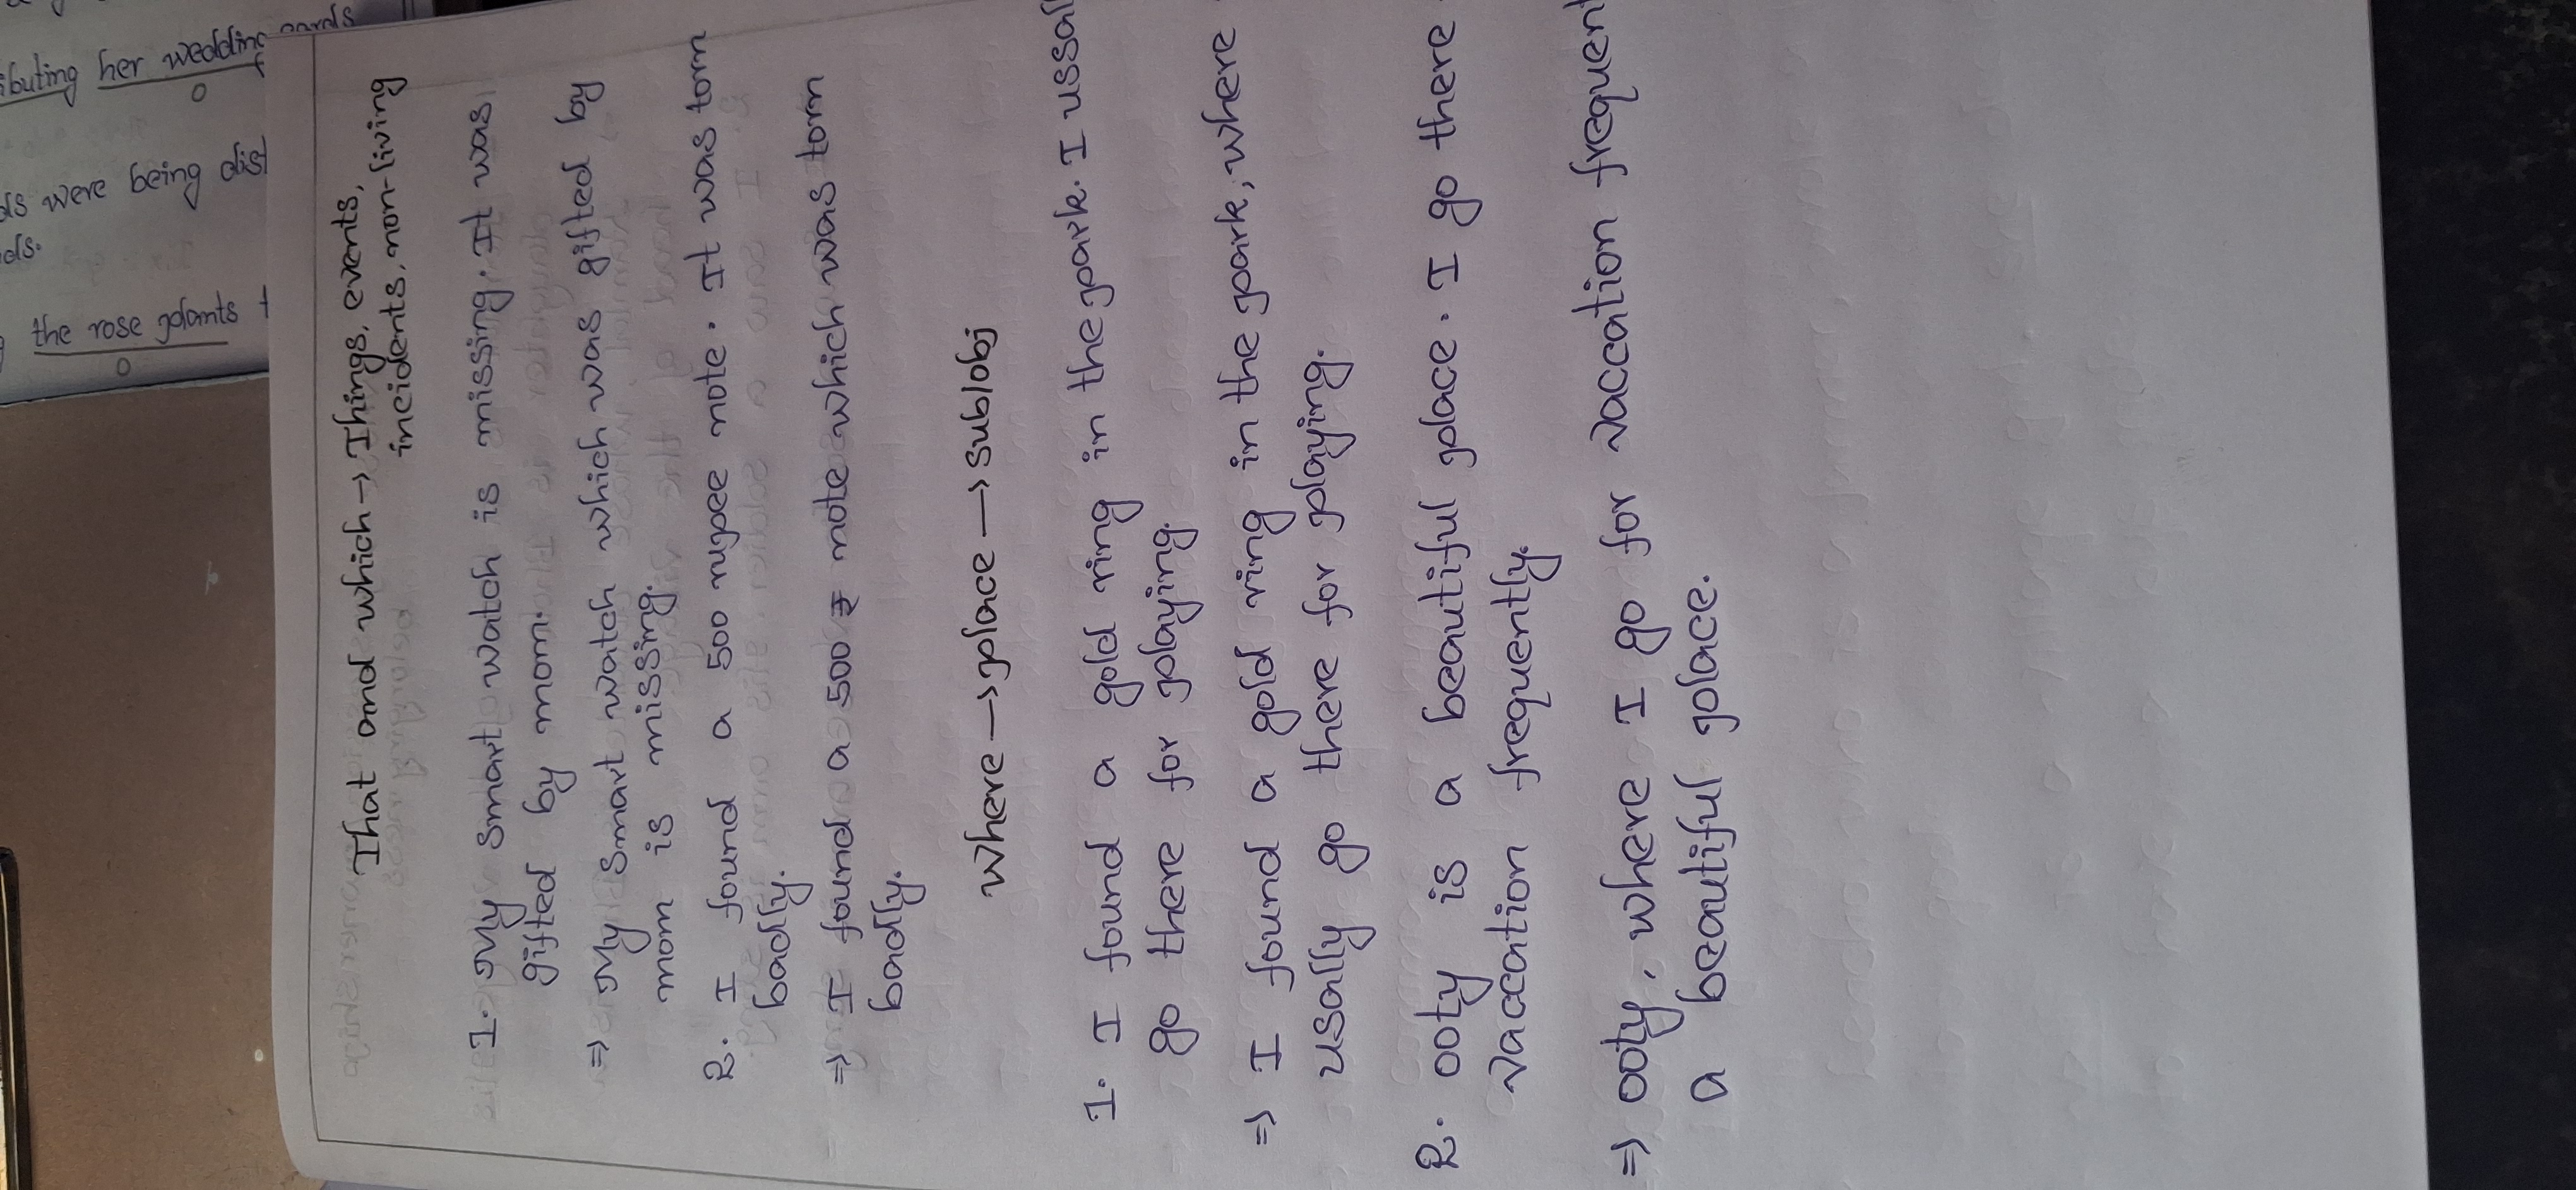 ibuting her wedding cards
o
ds were being dist
ds.
the rose plants
o
That and which → Things, events,
incidents, non-living
1. My smart watch is missing. It was
gifted by mom.
⇒ My smart watch which was gifted by
mom is missing.
2. I found a 500 rupee note. It was torn
badly.
⇒ I found a 500 ₹ note which was torn
badly.
where → place → sub/obj
1. I found a gold ring in the park. I usal
go there for playing.
⇒ I found a gold ring in the park, where
usally go there for playing.
2. ooty is a beautiful place. I go there
vaccation frequently.
⇒ ooty, where I go for vaccation frequent
a beautiful place.